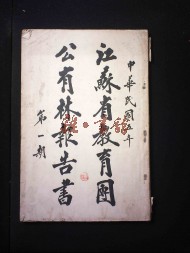 中華民國五年
江蘇省教育團
公有林報告書
第一期